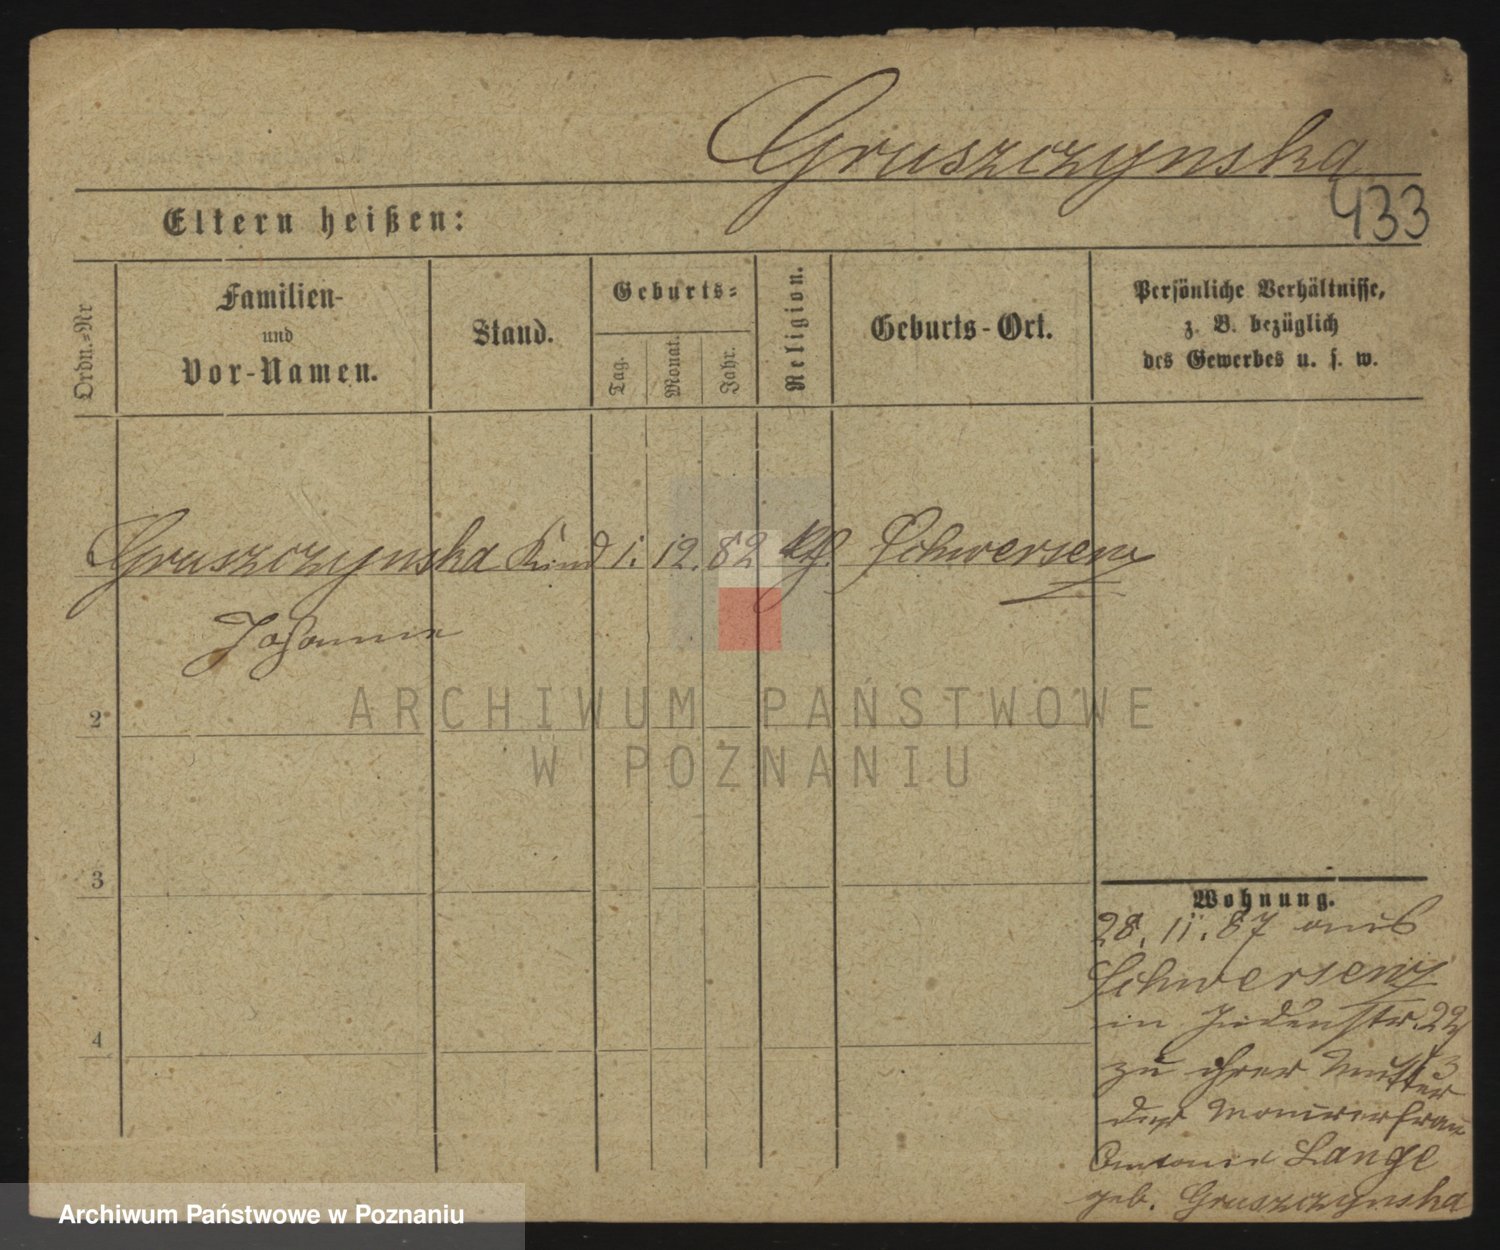 Gruszczynska
433
Eltern heißen:
Ordn.=Nr
Familien-
und
Vor-Namen.
Stand.
Geburts=
Tag.
Monat.
Jahr.
Religion.
Geburts-Ort.
Persönliche Verhältnisse,
z. B. bezüglich
des Gewerbes u. s. w.
Gruszczynska Kind 1. 12. 82 kth. Schwersenz
Johanna
2
3
4
Wohnung.
28. 11. 87 aus
Schwersenz
in Judenstr. 22/3
zu ihrer Mutter
der Maurerfrau
Antonie Lange
geb. Gruszczynska
ARCHIWUM PAŃSTWOWE
W POZNANIU
Archiwum Państwowe w Poznaniu